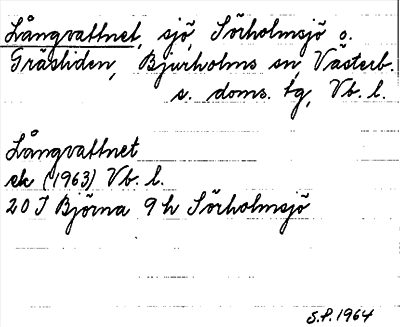 Långvattnet, sjö, Sörholmsjö o.
Gräsliden, Bjurholms sn, Västerb.
s. doms. tg, Vb. l.
Långvattnet
ek (1963) Vb. l.
20 I Björna 9 h Sörholmsjö
S.P. 1964